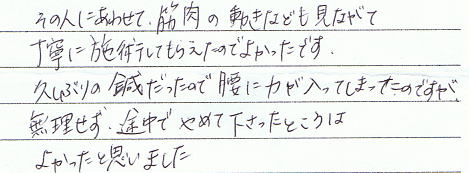 その人にあわせて、筋肉の動きなども見ながて
丁寧に施術してもらえたのでよかったです.
久しぶりの鍼だったので腰に力が入ってしまったのですが、
無理せず、途中でやめて下さったところは
よかったと思いました